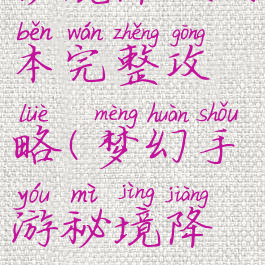 běn wán zhěng gōng
本完整攻
lüè mèng huàn shǒu
略(梦幻手
yóu mì jìng jiàng
游秘境降